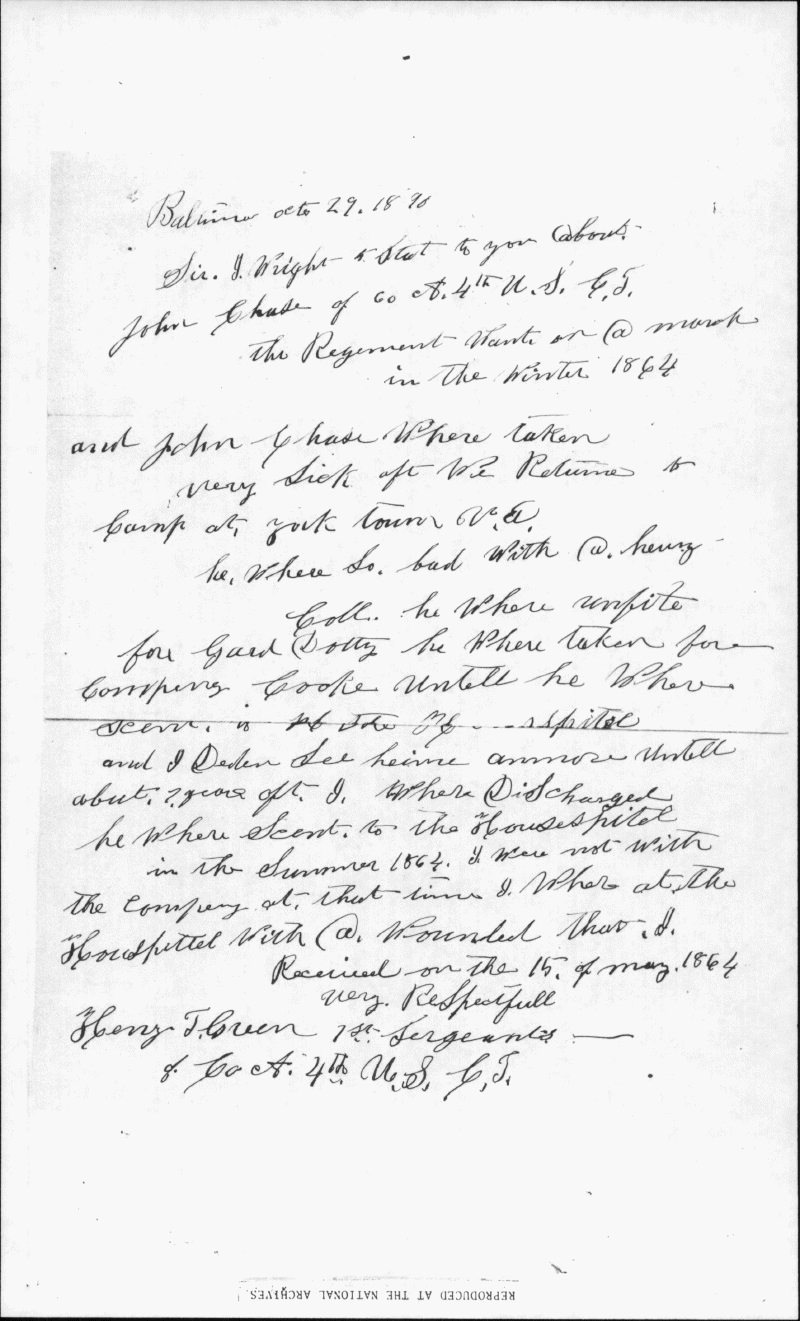 Baltimore octo 29. 1890
Sir. I Wright to Stat to you about
John Chase of Co A. 4th U. S. C. T.
the Regement Wants on @ march
in the Winter 1864
and John Chase Where taken
very Sick aft We Returne to
Camp at, york town V. a.
he, Where So. bad With @. heavy
Coll. he Where unfite
fore Gaurd Dotty he Where taken fore
Compeny Cooke untell he Where
Scent. to the Hospitel
and I Deden See heime anmore untell
about. 2 years aft. I. Where DisCharged
he Where Scent. to the Housespitel
in the Summer 1864. I were not With
the Compeny at. that time I. Where at. the
Houspittel With @. Wounded that. I.
Received on the 15. of may. 1864
very. ReSpectfull
Henry T. Green 1st Sergeants
of Co A. 4th U. S. C. T.
REPRODUCED AT THE NATIONAL ARCHIVES